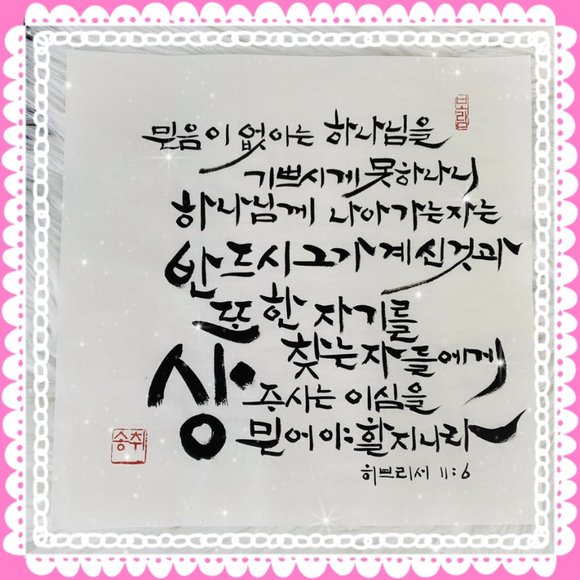 보람
믿음이 없이는 하나님을
기쁘시게 못하나니
하나님께 나아가는자는
반드시 그가 계신것과
또한 자기를
찾는자들에게
상 주시는 이심을
믿어야 할지니라
히브리서 11:6
송취